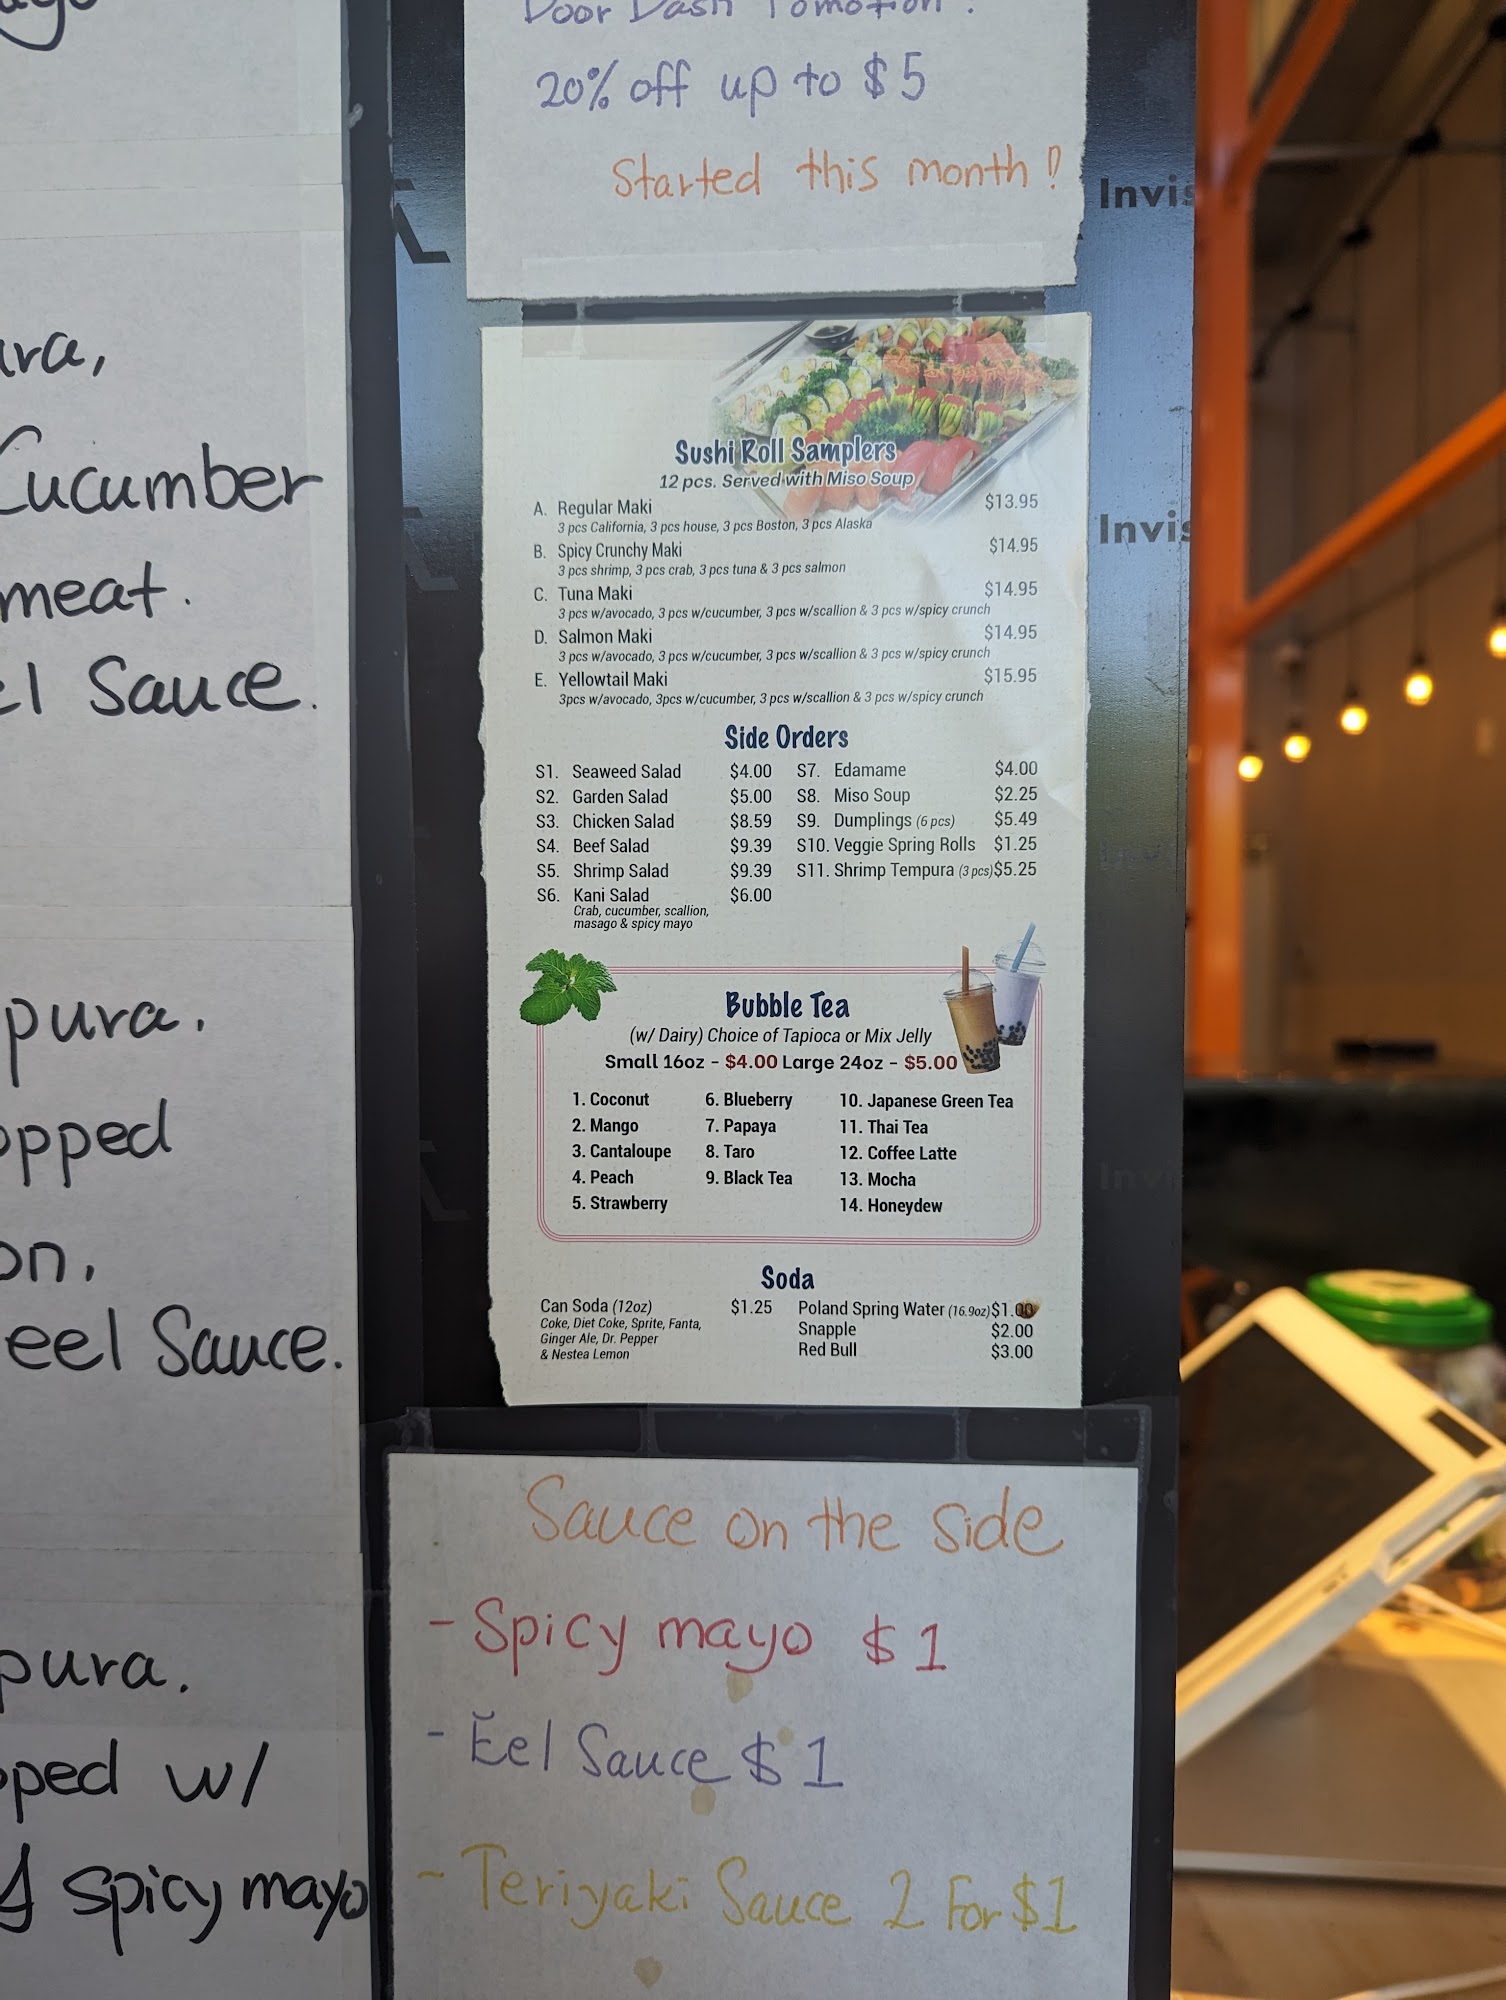 20% off up to $5
Started this month!
ura,
Cucumber
meat.
el Sauce.
pura.
opped
on,
eel Sauce.
pura.
pped w/
spicy mayo
Sushi Roll Samplers
12 pcs. Served with Miso Soup
A. Regular Maki $13.95
3 pcs California, 3 pcs house, 3 pcs Boston, 3 pcs Alaska
B. Spicy Crunchy Maki $14.95
3 pcs shrimp, 3 pcs crab, 3 pcs tuna & 3 pcs salmon
C. Tuna Maki $14.95
3 pcs w/avocado, 3 pcs w/cucumber, 3 pcs w/scallion & 3 pcs w/spicy crunch
D. Salmon Maki $14.95
3 pcs w/avocado, 3 pcs w/cucumber, 3 pcs w/scallion & 3 pcs w/spicy crunch
E. Yellowtail Maki $15.95
3pcs w/avocado, 3pcs w/cucumber, 3 pcs w/scallion & 3 pcs w/spicy crunch
Side Orders
S1. Seaweed Salad $4.00
S2. Garden Salad $5.00
S3. Chicken Salad $8.59
S4. Beef Salad $9.39
S5. Shrimp Salad $9.39
S6. Kani Salad $6.00
Crab, cucumber, scallion,
masago & spicy mayo
S7. Edamame $4.00
S8. Miso Soup $2.25
S9. Dumplings (6 pcs) $5.49
S10. Veggie Spring Rolls $1.25
S11. Shrimp Tempura (3 pcs) $5.25
Bubble Tea
(w/ Dairy) Choice of Tapioca or Mix Jelly
Small 16oz - $4.00 Large 24oz - $5.00
1. Coconut
2. Mango
3. Cantaloupe
4. Peach
5. Strawberry
6. Blueberry
7. Papaya
8. Taro
9. Black Tea
10. Japanese Green Tea
11. Thai Tea
12. Coffee Latte
13. Mocha
14. Honeydew
Soda
Can Soda (12oz) $1.25
Coke, Diet Coke, Sprite, Fanta,
Ginger Ale, Dr. Pepper
& Nestea Lemon
Poland Spring Water (16.9oz) $1.00
Snapple $2.00
Red Bull $3.00
Sauce on the side
- Spicy mayo $1
- Eel Sauce $1
- Teriyaki Sauce 2 For $1
Invis
Invis
Invi